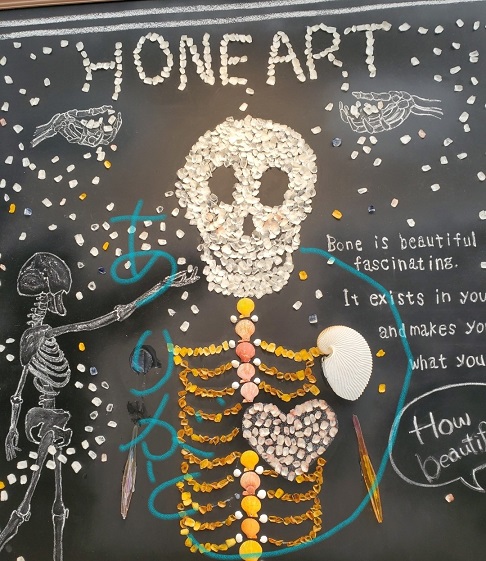 HONE ART
Bone is beautiful
fascinating.
It exists in you
and makes yo
what you
How
beautif
あり